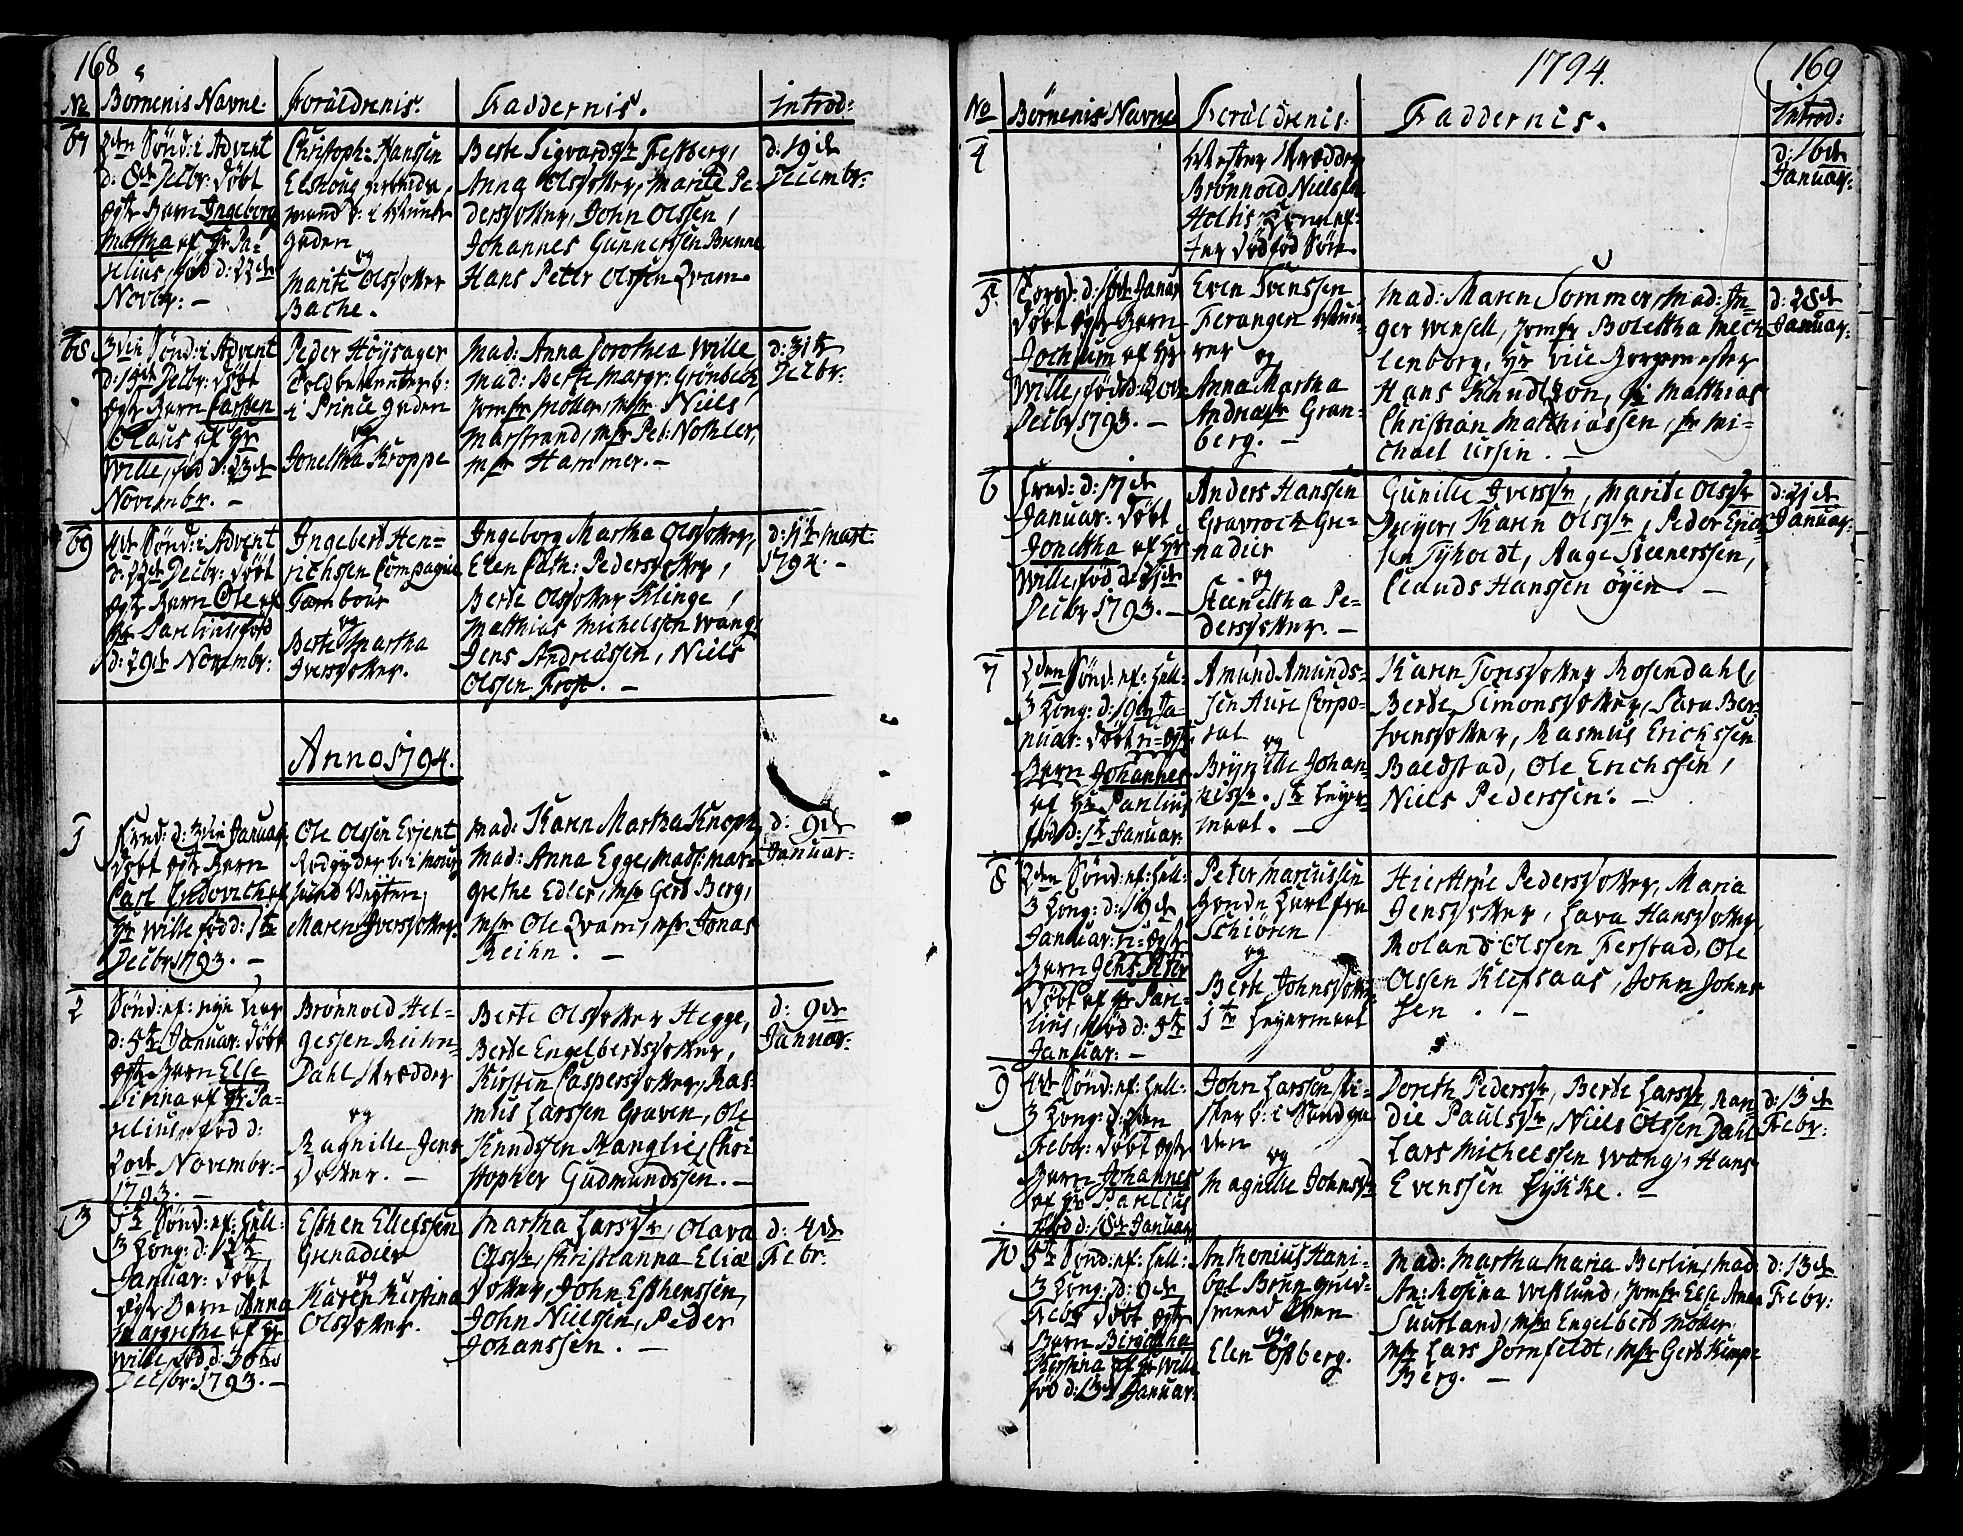 168
No Børnenis Navne. Forældrenis. Faddernis. introd:
67
2den Sønd: i Advent
d: 8de Decbr: døbt
ægte Barn Ingeborg
Martha af Hr Pa-
relius, fød d: 22de
Novbr: —
Christoph: Hanssen
og
Marit Olsdotter
Bache.
Berte Sigvardsdr Festberg,
Anna Olsdotter, Marite Pe-
dersdotter, John Olssen,
Johannes Gunnerssen Brenne
Hans Peter Olssen Qvam
d: 19de
Decembr:
68
3die Sønd: i Advent
d: 15de Decbr: døbt
ægte Barn Carsten
Olaus af Hr
Wille, fød d: 23de
Novembr. —
Peder Høysager
i Prinds gaden
og
Jonetha Kroppe
Mad: Anna Dorothea Wille
Mad: Berte Margr: Grønbech,
Jomfr Møller, Msr Niels
Marstrand, Msr Pet: Nohler,
Msr Hammer. —
d: 31te
Decbr:
69
4de Sønd: i Advent
d: 22de Decbr: døbt
ægte Barn Ole af
Hr Parelius, fød
d: 29de Novembr:
Ingebert Hen-
richssen Compagnie
Tambour
og
Berte Martha
Iversdotter.
Ingeborg Martha Olsdotter,
Elen Cath: Pedersdotter,
Berte Olsdotter Klinge,
Matthias Michelssen Wang,
Jens Andreassen, Niels
Olssen Frost. —
d: 1te Mart
1794. —
Anno 1794.
1
Fred: d: 3die Januar:
døbt ægte Barn
Carl Ludovich af
Hr Wille fød d: 1te
Decbr 1793. —
Ole Olssen Erjent
Maren Iversdotter.
Mad: Karen Martha Knoph,
Mad: Anna Egge, Mads: Mar-
grethe Edler, Msr Gert Berg,
Msr Ole Qvam, Msr Jonas
Reihn. —
d: 9de
Januar:
2
Sønd: ef: nyt Aar
d: 5te Januar: døbt
ægte Barn Else
Sirina af Hr Pa-
relius, fød d:
20de Novembr:
1793. —
Brønnold Hel-
gessen Reihn-
Dahl skrædder
og
Ragnille Jens
dotter. —
Berte Olsdotter Hegge,
Berte Engelbertsdotter,
Kirsten Caspersdotter, Ras-
mus Larssen Graven, Ole
Knudssen Stanglie, Chri-
stopher Gudmundssen. —
d: 9de
Januar:
3
1te Sønd: ef: Hell:
3 Kong: d: 12te
Januar: døbt
ægte Barn Anna
Margrethe af Hr
Wille, fød d: 30te
Decbr: 1793. —
Esthen Ellefssen
Grenadier
og
Karen Kirstina
Olsdotter.
Martha Larsdr, Olava
Olsdr, Christianna Eliæ
dotter, John Esthenssen,
John Nielssen, Peder
Johanssen. —
d: 4de
Febr:
1794. 169
No Børnenis Navne Forældrenis: Faddernis. introd:
4
Mester skrædder
Brønnold Nielssen
Holtis Kone ef:
Inr Dødfød Søn
d: 16de
Januar:
5
Torsd: d: 16de Januar
døbt ægte Barn
Jochum af Hr
Wille, fød d: 20de
Decbr 1793. —
Even Svenssen
og
Anna Martha
Andreædr Gran-
berg. —
Mad: Maren Sommer, Mad: In-
ger Wensell, Jomfr Boletha Mech-
lenborg, Hr Vice Borgemester
Hans Knudtzon, Hr Matthias
Christian Matthiassen, Hr Mi-
chael Ursin. —
d: 28de
Januar:
6
Fred: d: 17de
Januar: døbt
Jonetha af Hr
Wille, fød d: 21de
Decbr 1793. —
Anders Hanssen
Gravrock Gre-
nadier
og
Steenetha Pe-
dersdotter. —
Gunille Iversdr, Marite Olsdr
Dreyer, Karen Olsdr, Peder Erich-
sen Tyholdt, Aage Steenerssen,
Clauds Hanssen Øyen. —
d: 21de
Januar:
7
2den Sønd: ef: Hell:
3 Kong: d: 19de Ja-
nuar: døbt u-ægte
Barn Johannes
af Hr Parelius
fød d: 1te Januar:
Amund Amunds-
sen Aure Corpo-
ral
og
Brynille Johan-
nisdr. 1te Leyer-
maal. —
Karen Tonsdotter Rosendahl,
Berte Simonsdotter, Sara Ber-
svensdotter, Rasmus Erichssen
Baedstad, Ole Erichssen,
Niels Pederssen. —
8
2den Sønd: ef: Hell:
3 Kong: d: 19de
Januar: u-ægte
Barn Jens Siir
døbt af Hr Pare-
lius, fød d: 5te
Januar: —
Peter Mariussen
Bonde Karl fra
Schiøren
og
Berte Johnsdotter
1te Leyermaal
Hiertrue Pedersdotter, Maria
Jensdotter, Lava Hansdotter,
Roland Olssen Ferstad, Ole
Olssen Klefsaas, John Johns
sen. —
9
4de Sønd: ef: Hell:
3 Kong: d: 2den
Febr: døbt ægte
Barn Johannes
af Hr Parelius
fød d: 18de Januar:
John Larssen Fi-
sker b: i Sandga-
den
og
Magnille Johnsdr
Doreth Pedersdr, Berte Larsdr, Ran-
die Paulsdr, Niels Olssen Dahl
Lars Michelssen Wang, Hans
Evenssen Lykke. —
d: 13de
Febr:
10
5te Sønd: ef: Hell:
3 Kong: d: 9de
Febr døbt ægte
Barn Birgitha
Kirstina af Hr Wille
fød d: 13de Januar:
Anthonius Hani-
bal Brun guld-
smed Svenn
og
Elen Østberg.
Mad: Martha Maria Berlin, Mad:
An: Rosina Wistlund, Jomfr Else Anna
Suurland, Msr Engelbert Møller,
Msr Lars Dornfeldt, Msr Gert Kampe
Berg. —
d: 13de
Febr: